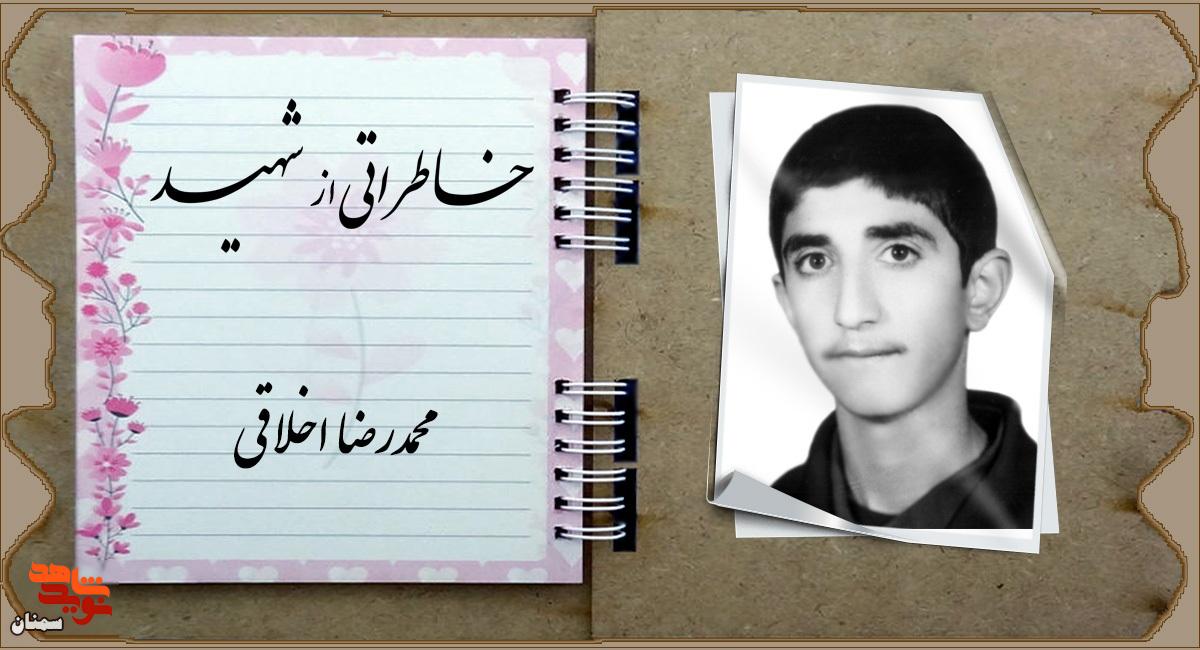 خاطراتی از شهید
محمدرضا اخلاقی
نوید شاهد
سمنان